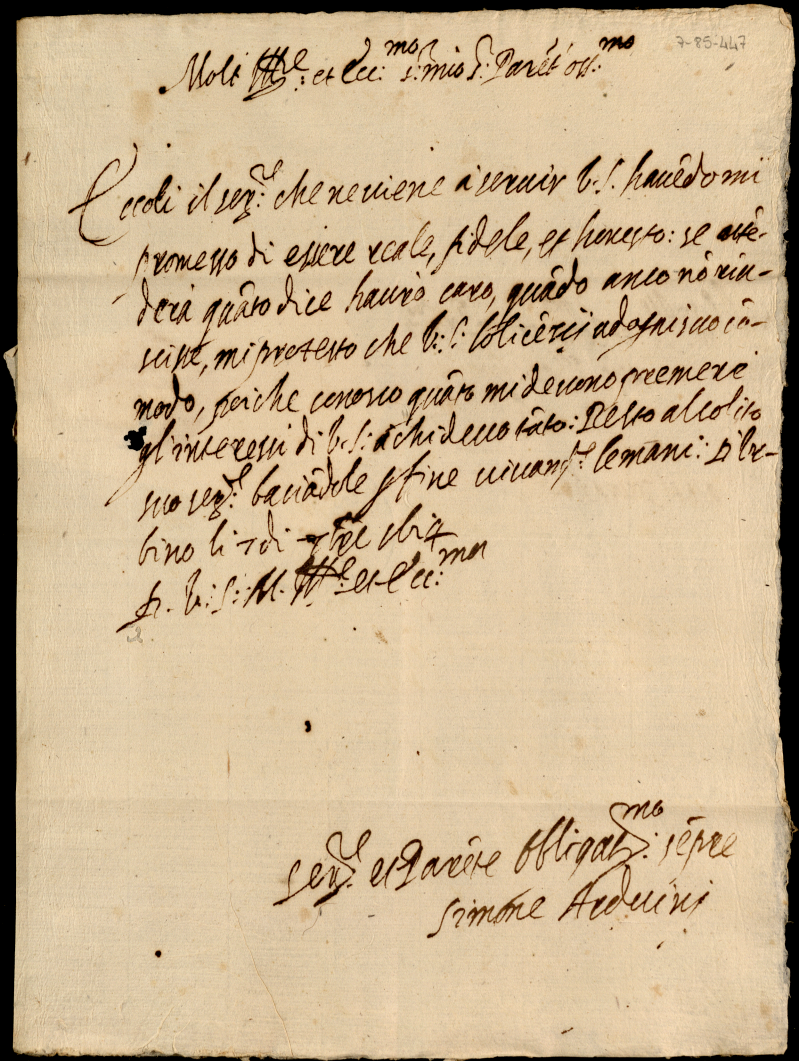 7-85-447
Molt Ill.re et Ecc.mo s.r mio S.r Parēt oss.mo
Eccoli il ser.re che ne viene à servir V.S. havēdomi
promesso di essere reale, fidele, et honesto: se attē-
derà quāto dice haurò caro, quādo anco nō riu-
scisse, mi protesto che V.S. lo licētij ad ogni suo cō-
modo, poiche conosco quāto mi devono premere
gl'interessi di V.S. à chi devo tāto: Resto al solito
suo ser.re baciādole p fine vivam.te le mani: Di Ur-
bino li 7 di
D. V. S. M. Ill.re et Ecc.ma
Ser.re et Parēte Obligat.mo sēpre
Simone Arduini